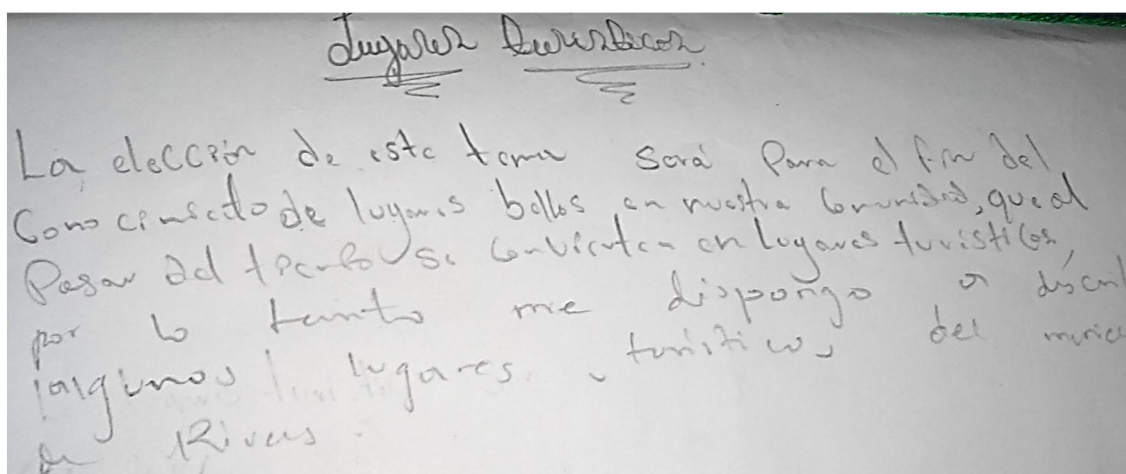 Lugares turisticos
La elección de este tema será para el fin del
conocimiento de lugares bellos en nuestra comunidad, que al
pasar del tiempo se convierten en lugares turísticos,
por lo tanto me dispongo a
algunos lugares turísticos del
de Rivas.